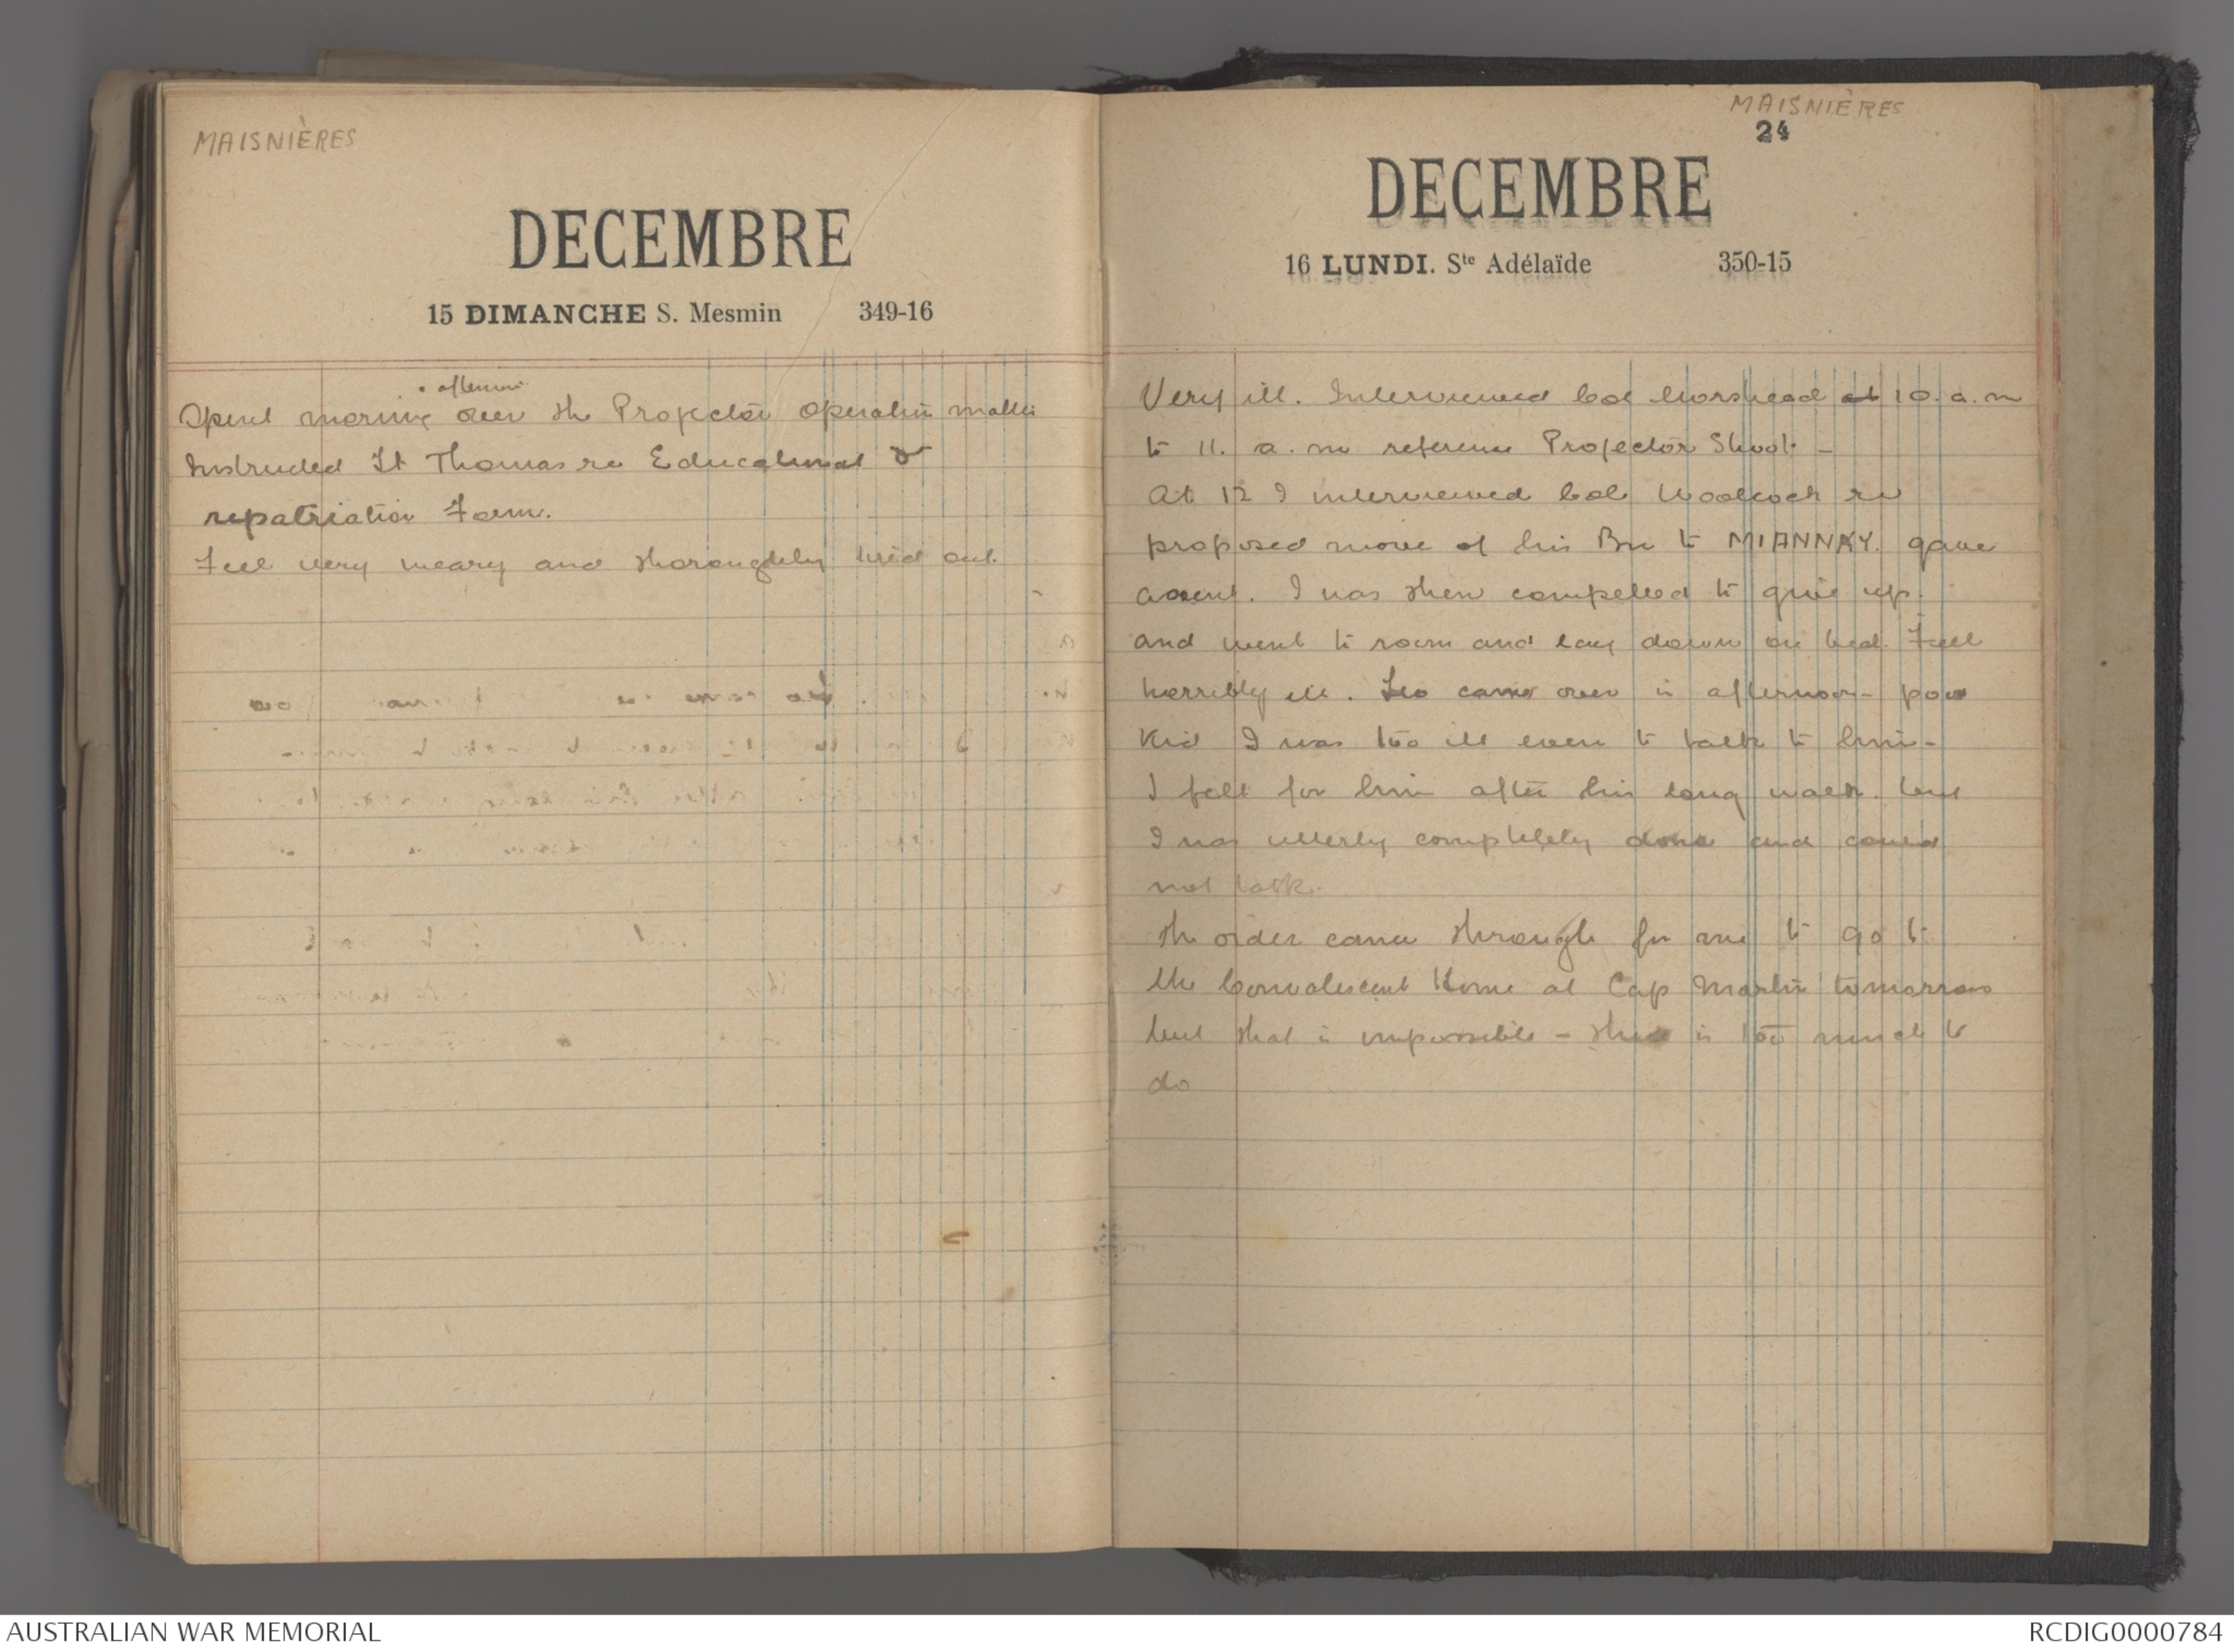 MAISNIÈRES
DECEMBRE
15 DIMANCHE S. Mesmin 349-16
Spent morning & afternoon over the Projector operation matter
Instructed Lt Thomas re Educational &
repatriation Form.
Feel very weary and thoroughly tired out.
MAISNIÈRES
24
DECEMBRE
16 LUNDI. Ste Adélaïde 350-15
Very ill. Interviewed Col Morshead at 10.a.m
to 11. a.m reference Projector Shoot -
At 12 I interviewed Col Woolcock re
proposed move of his Bn to MIANNAY. gave
assent. I was then compelled to give up.
and went to room and lay down on bed. Feel
horribly ill. Leo came over in afternoon - poor
Kid I was too ill even to talk to him -
I felt for him after his long walk. but
I was utterly completely done and could
not talk.
The order came through for me to go to
the Convalescent Home at Cap Martin tomorrow
but that is impossible - there is too much to
do
AUSTRALIAN WAR MEMORIAL
RCDIG0000784